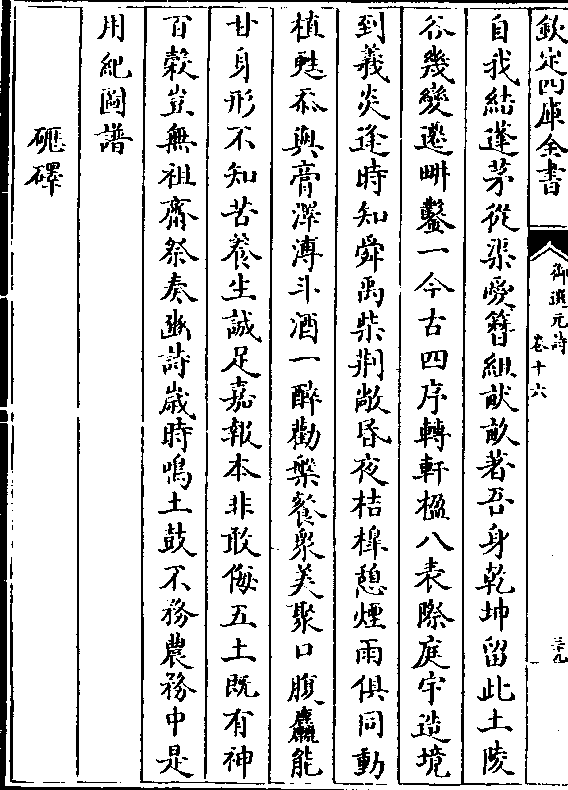 欽定四庫全書
御選元詩
卷十六
三十九
自我結蓬茅從渠愛簪組畎畝著吾身乾坤留此土陵
谷幾變遷畊鑿一今古四序轉軒楹八表際庭宇造境
到羲炎逢時知舜禹柴荆敞昏夜桔橰憩煙雨俱同動
植甦忝與膏澤溥斗酒一醉勸槃餐衆美聚口腹麤能
甘身形不知苦養生誠足嘉報本非敢侮五土既有神
百榖豈無祖齋祭奏豳詩歲時鳴土鼓不務農務中是
用紀圖譜
磟碡